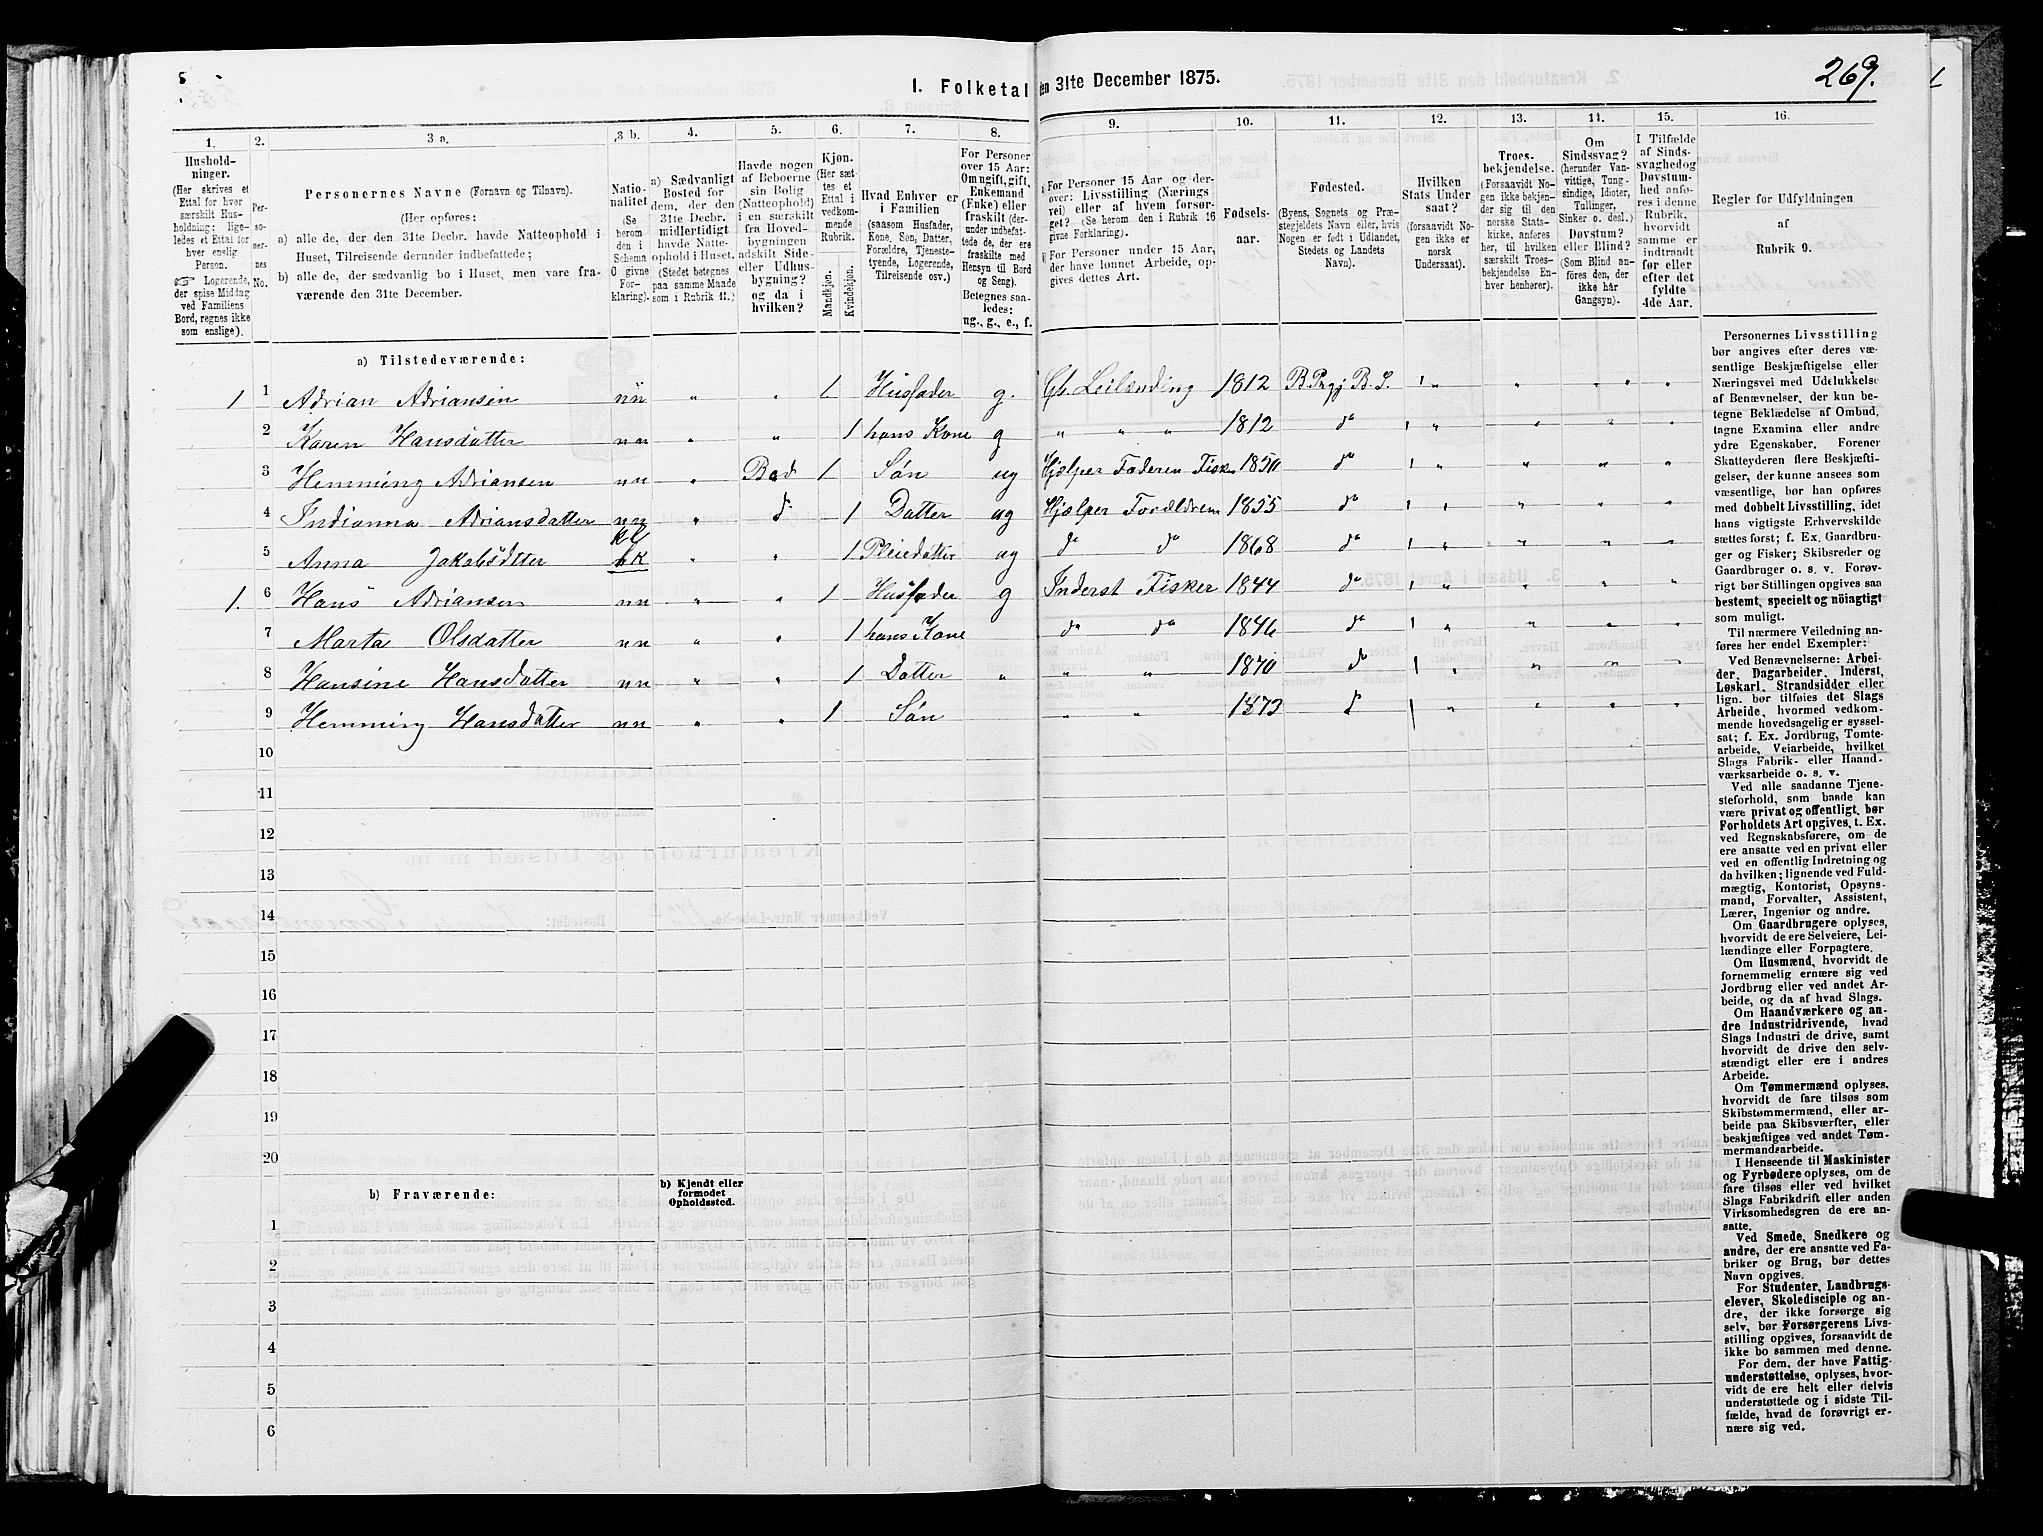 I. Folketal den 31te December 1875.
269.
1.
2.
3 a.
3 b.
4.
5.
6.
7.
8.
9.
10.
11.
12.
13.
14.
15.
16.
Hushold-
ninger.
(Her skrives et
Ettal for hver
særskilt Hus-
holdning; lige-
ledes et Ettal for
hver enslig
Person.
Logerende,
der spise Middag
ved Familiens
Bord, regnes ikke
som enslige).
Per-
so-
ner-
nes
No.
Personernes Navne (Fornavn og Tilnavn).
(Her opføres:
a) alle de, der den 31te Decbr. havde Natteophold i
Huset, Tilreisende derunder indbefattede;
b) alle de, der sædvanlig bo i Huset, men vare fra-
værende den 31te December.
Natio-
nalitet
(Se
herom
den i
Schema
O givne
For-
klaring).
a) Sædvanligt
Bosted for
dem, der den
31te Decbr.
midlertidigt
havde Natte-
ophold i Huset.
(Stedet betegnes
paa samme Maade
som i Rubrik 11.)
Havde nogen
af Beboerne
sin Bolig
(Natteophold)
i en særskilt
fra Hoved-
bygningen
adskilt Side-
eller Udhus-
bygning?
og da i
hvilken?
Kjøn.
(Her sæt-
tes et
Ettal i
vedkom-
mende
Rubrik.
Mandkjøn.
Kvindekjøn.
Hvad Enhver er
i Familien
(saasom Husfader,
Kone, Søn, Datter,
Forældre, Tjeneste-
tyende, Logerende,
Tilreisende osv.)
For Personer
over 15 Aar:
Om ugift, gift,
Enkemand
(Enke) eller
fraskilt (der-
under indbefat-
tede de, der ere
fraskilte med
Hensyn til Bord
og Seng).
Betegnes saa-
ledes:
ug., g., e., f.
a) For Personer 15 Aar og der-
over: Livsstilling (Nærings-
vei) eller af hvem forsør-
get? (Se herom den i Rubrik 16
givne Forklaring).
b) For Personer under 15 Aar,
der have lønnet Arbeide, op-
gives dettes Art.
Fødsels-
aar.
Fødested.
(Byens, Sognets og Præ-
stegjeldets Navn eller, hvis
Nogen er født i Udlandet,
Stedets og Landets
Navn).
Hvilken
Stats Under-
saat?
(forsaavidt No-
gen ikke er
norsk
Undersaat).
Troes-
bekjendelse.
(Forsaavidt No-
gen ikke bekjen-
der sig til den
norske Stats-
kirke, anføres
her, til hvilken
særskilt Troes-
bekjendelse En-
hver henhører).
Om
Sindssvag?
(herunder Van-
vittige, Tung-
sindige, Idioter,
Tullinger,
Sinker o. desl.)
Døvstum?
eller Blind?
(Som Blind an-
føres den, der
ikke har
Gangsyn).
I Tilfælde
af Sinds-
svaghed og
Døvstum-
hed anfø-
res i denne
Rubrik,
hvorvidt
samme er
indtraadt
før eller
efter det
fyldte
4de Aar.
Regler for Udfyldningen
af
Rubrik 9.
a) Tilstedeværende:
1 1 Adrian Adriansen nn " " 1 Husfader g. Gb. Leilænding 1812 B. Prgj B. S. 1 " " " " "
2 Karen Hansdatter nn " " 1 hans Kone g " " " 1812 do 1 " " " "
3 Hemming Adriansen nn " Bod 1 Søn ug Hjælper Faderen Fisk 1850 do 1 " " " "
4 Indianna Adriansdatter nn " do 1 Datter ug Hjælper Forældren 1855 do 1 " " " "
5 Anna Jakobsdtter " " 1 Pleiedatter ug do do 1868 do 1 " " " "
1. 6 Hans Adriansen nn " " 1 Husfader g Inderst Fisker 1844 do 1 " " " "
7 Marta Olsdatter nn " " 1 hans Kone do do 1846 do 1 " " " "
8 Hansine Hansdatter nn " " 1 Datter " " " 1870 do 1 " " " "
9 Hemming Hansdatter nn " " 1 Søn " " 1873 do 1 " " " "
10
11
12
13
14
15
16
17
18
19
20
b) Fraværende:
b) Kjendt eller
formodet
Opholdssted.
1
2
3
4
5
6
Personernes Livsstilling
bør angives efter deres væ-
sentlige Beskjæftigelse eller
Næringsvei med Udelukkelse
af Benævnelser, der kun be-
tegne Beklædelse af Ombud,
tagne Examina eller andre
ydre Egenskaber. Forener
Skatteyderen flere Beskjæfti-
gelser, der kunne ansees som
væsentlige, bør han opføres
med dobbelt Livsstilling, idet
hans vigtigste Erhvervskilde
sættes først; f. Ex. Gaardbru-
ger og Fisker; Skibsreder og
Gaardbruger o. s. v. Forøv-
rigt bør Stillingen opgives saa
bestemt, specielt og nöiagtigt
som muligt.
Til nærmere Veiledning an-
føres her endel Exempler:
Ved Benævnelserne: Arbei-
der, Dagarbeider, Inderst,
Løskarl, Strandsidder eller
lign. bør tilføies det Slags
Arbeide, hvormed vedkom-
mende hovedsagelig er syssel-
sat; f. Ex. Jordbrug, Tomte-
arbeide, Veiarbeide, hvilket
Slags Fabrik- eller Haand-
værksarbeide o. s. v.
Ved alle saadanne Tjene-
steforhold, som baade kan
være privat og offentligt, bør
Forholdets Art opgives, t. Ex.
ved Regnskabsførere, om de
ere ansatte ved en privat eller
ved en offentlig Indretning og
da hvilken; lignende ved Fuld-
mægtig, Kontorist, Opsyns-
mand, Forvalter, Assistent,
Lærer, Ingeniør og andre.
Om Gaardbrugere oplyses,
hvorvidt de ere Selveiere, Lei-
lændinge eller Forpagtere.
Om Husmænd, hvorvidt de
fornemmelig ernære sig ved
Jordbrug eller ved andet Ar-
beide, og da af hvad Slags.
Om Haandværkere og an-
dre Industridrivende, hvad
Slags Industri de drive, samt
hvorvidt de drive den selv-
stændigt eller ere i andres
Arbeide.
Om Tømmermænd oplyses,
hvorvidt de fare tilsøs som
Skibstømmermænd, eller ar-
beide paa Skibsværfter, eller
beskjæftiges ved andet Tøm-
mermandsarbeide.
I Henseende til Maskinister
og Fyrbødere oplyses, om de
fare tilsøs eller ved hvilket
Slags Fabrikdrift eller anden
Virksomhedsgren de ere an-
satte.
Ved Smede, Snedkere og
andre, der ere ansatte ved Fa-
briker og Brug, bør dettes
Navn opgives.
For Studenter, Landbrugs-
elever, Skoledisciple og an-
dre, der ikke forsørge sig
selv, bør Forsørgerens Livs-
stilling opgives, forsaavidt de
ikke bo sammen med denne.
For dem, der have Fattig-
understøttelse, oplyses, hvor-
vidt de ere helt eller delvis
understøttede og i sidste Til-
fælde, hvad de forøvrigt er-
nære sig ved.